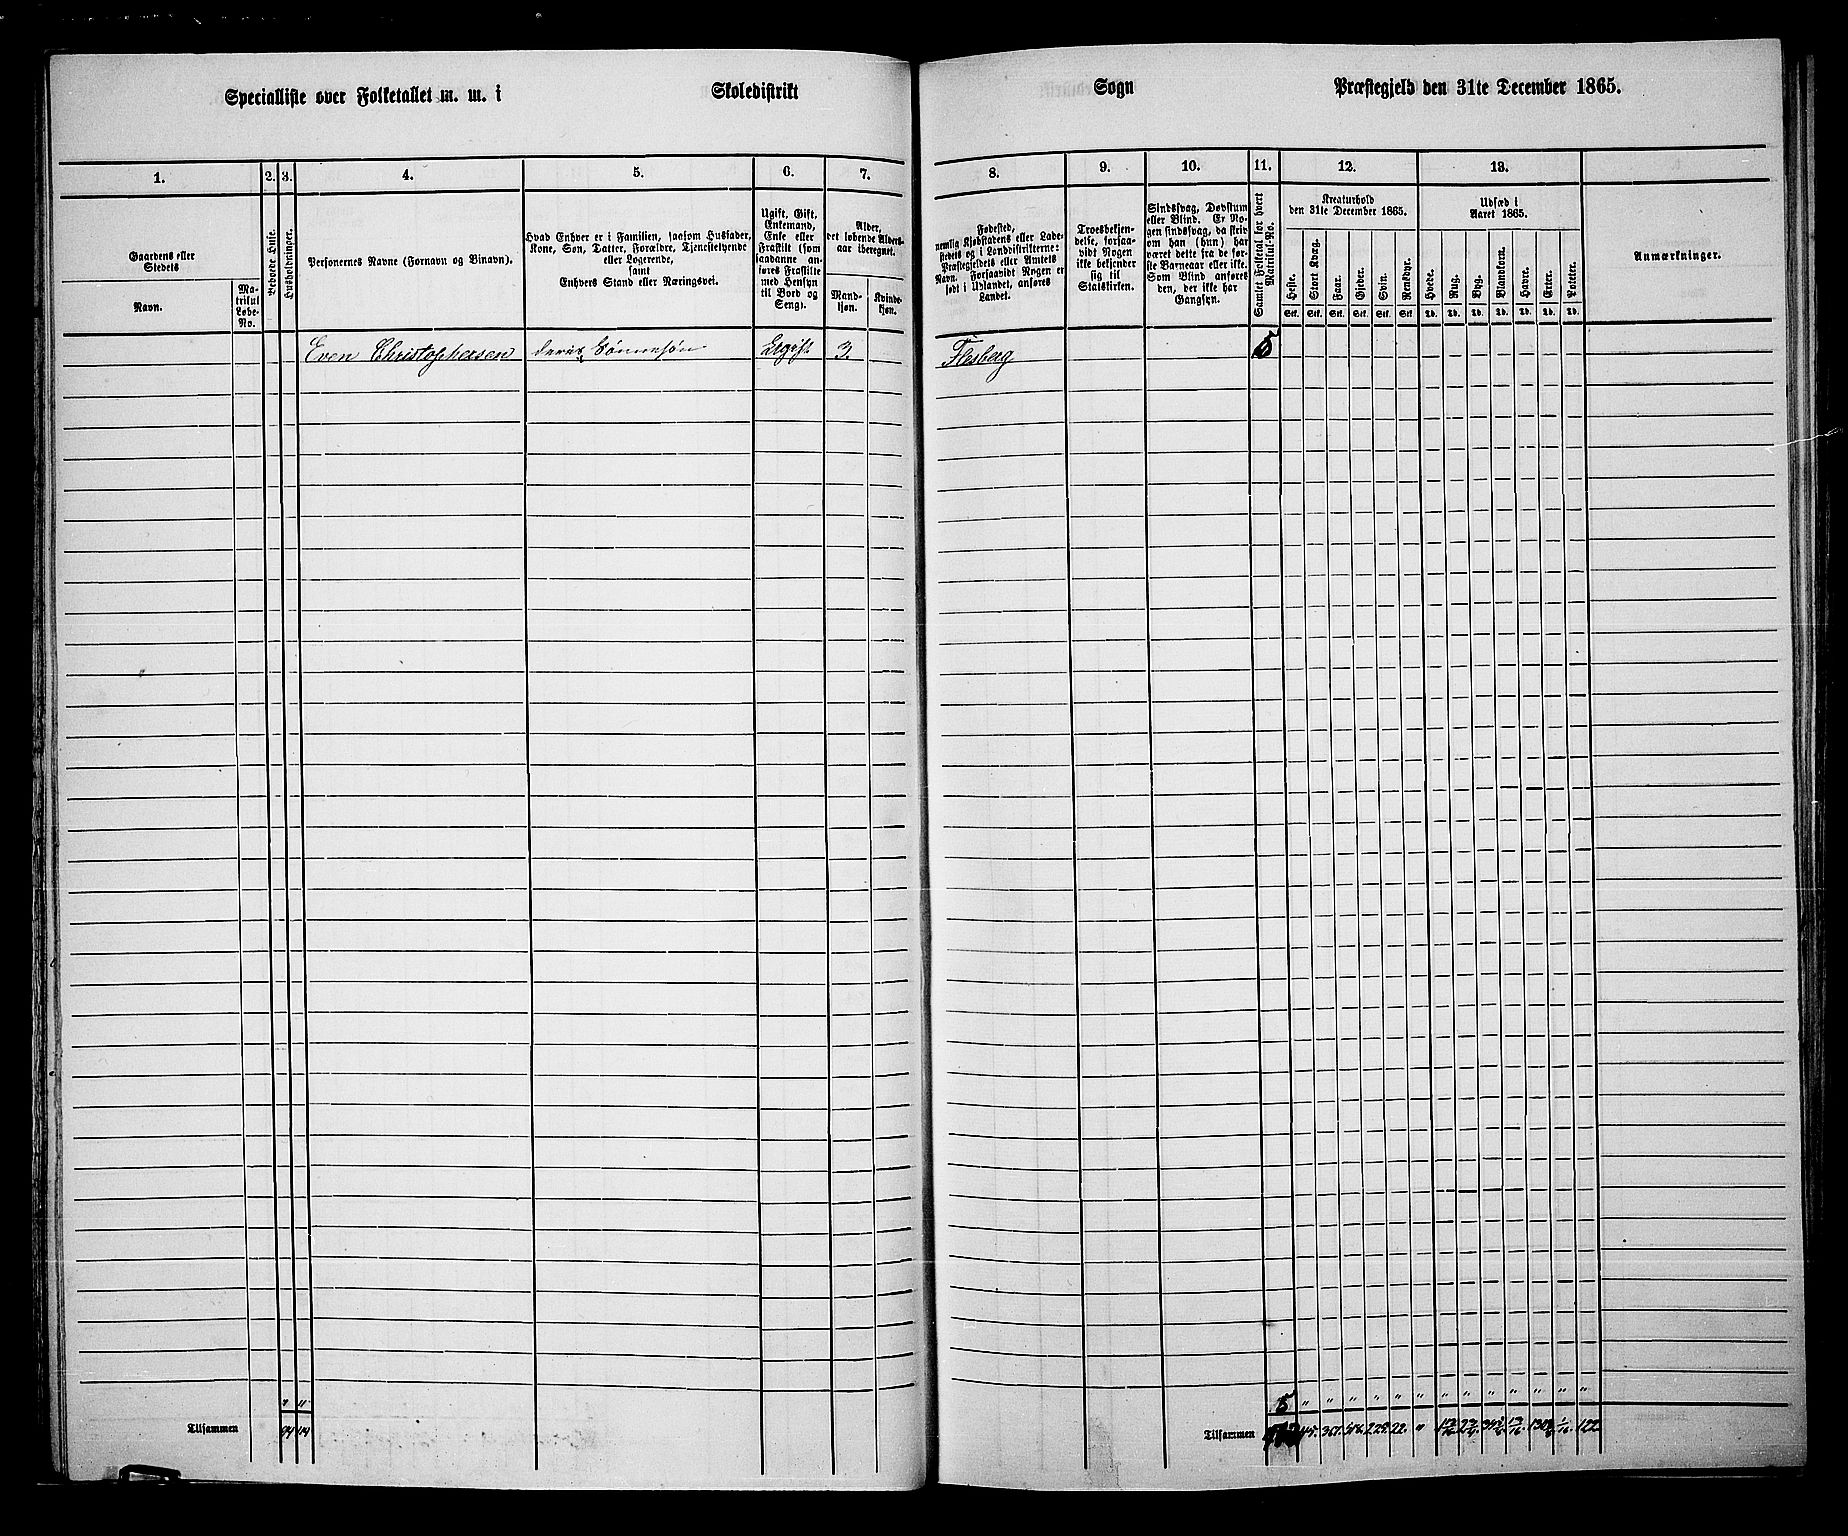 Specialliste over Folketallet m. m. i Skoledistrikt Sogn Præstegjeld den 31te December 1865.
1. 2. 3. 4. 5. 6. 7. 8. 9. 10. 11. 12. 13.
Gaardens eller
Stedets
Navn.
Ma-
trikul
Løbe-
No.
Beboede Huse.
Husholdninger.
Personernes Navne (Fornavn og Binavn).
Hvad Enhver er i Familien, saasom Husfader,
Kone, Søn, Datter, Forældre, Tjenestetyende
eller Logerende,
samt
Enhvers Stand eller Næringsvei.
Ugift, Gift,
Enkemand,
Enke eller
Fraskilt (som
saadanne an-
føres Fraskilte
med Hensyn
til Bord og
Seng).
Alder,
det løbende Alders-
aar iberegnet.
Mand-
kjøn.
Kvinde-
kjøn.
Fødested,
nemlig Kjøbstadens eller Lade-
stedets og i Landdistrikterne:
Præstegjeldets eller Amtets
Navn. Forsaavidt Nogen er
født i Udlandet, anføres
Landet.
Troesbekjen-
delse, forsaa-
vidt Nogen
ikke bekjender
sig til
Statskirken.
Sindssvag, Døvstum
eller Blind. Er No-
gen sindssvag, da skriv
om han (hun) har
været dette fra de før-
ste Barneaar eller ikke.
Som Blind anføres
den, der ikke har
Gangsyn.
Samlet Folketal for hvert
Matrikul-No.
Kreaturhold
den 31te December 1865.
Heste. Stort Kvæg. Faar. Gjeder. Svin. Rensdyr.
Stk. Stk. Stk. Stk. Stk. Stk.
Udsæd i
Aaret 1865.
Hvede. Rug. Byg. Blandkorn. Havre. Erter. Poteter.
Td. Td. Td. Td. Td. Td. Td.
Anmærkninger.
Even Christophersen deres Sønnesøn Ugift 3. Flesberg 5
" " 5 " " " " " " " " " " " " "
Tilsammen
Tilsammen 22. " 122